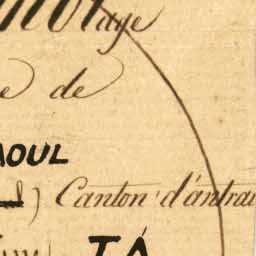 age
e de
AOUL
) Canton d'antrai
TÁ